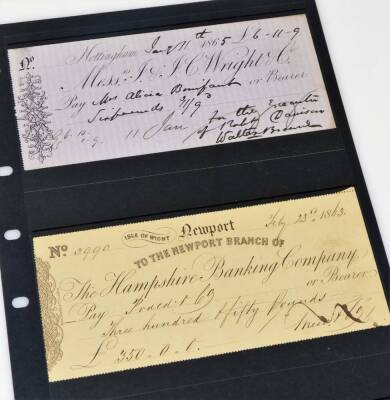 Nottingham Jany 11th 1865 £6-11-9
No.
Messrs. I. & I. C. Wright & Co.
Pay Mrs Alicia Bonifant or Bearer
Six pounds 11/9d
£6-11-9. 11 Jan for the Executors
of Robt Davison
Walter
Newport Feby 23rd 1863.
No 2990 ISLE OF WIGHT
TO THE NEWPORT BRANCH OF
The Hampshire Banking Company
Pay or Bearer
Three hundred & fifty Pounds
£350-0-0.